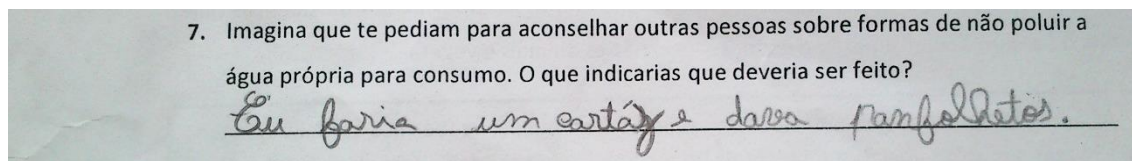 7. Imagina que te pediam para aconselhar outras pessoas sobre formas de não poluir a
água própria para consumo. O que indicarias que deveria ser feito?
Eu faria um cartáz e dava panfolhetos.